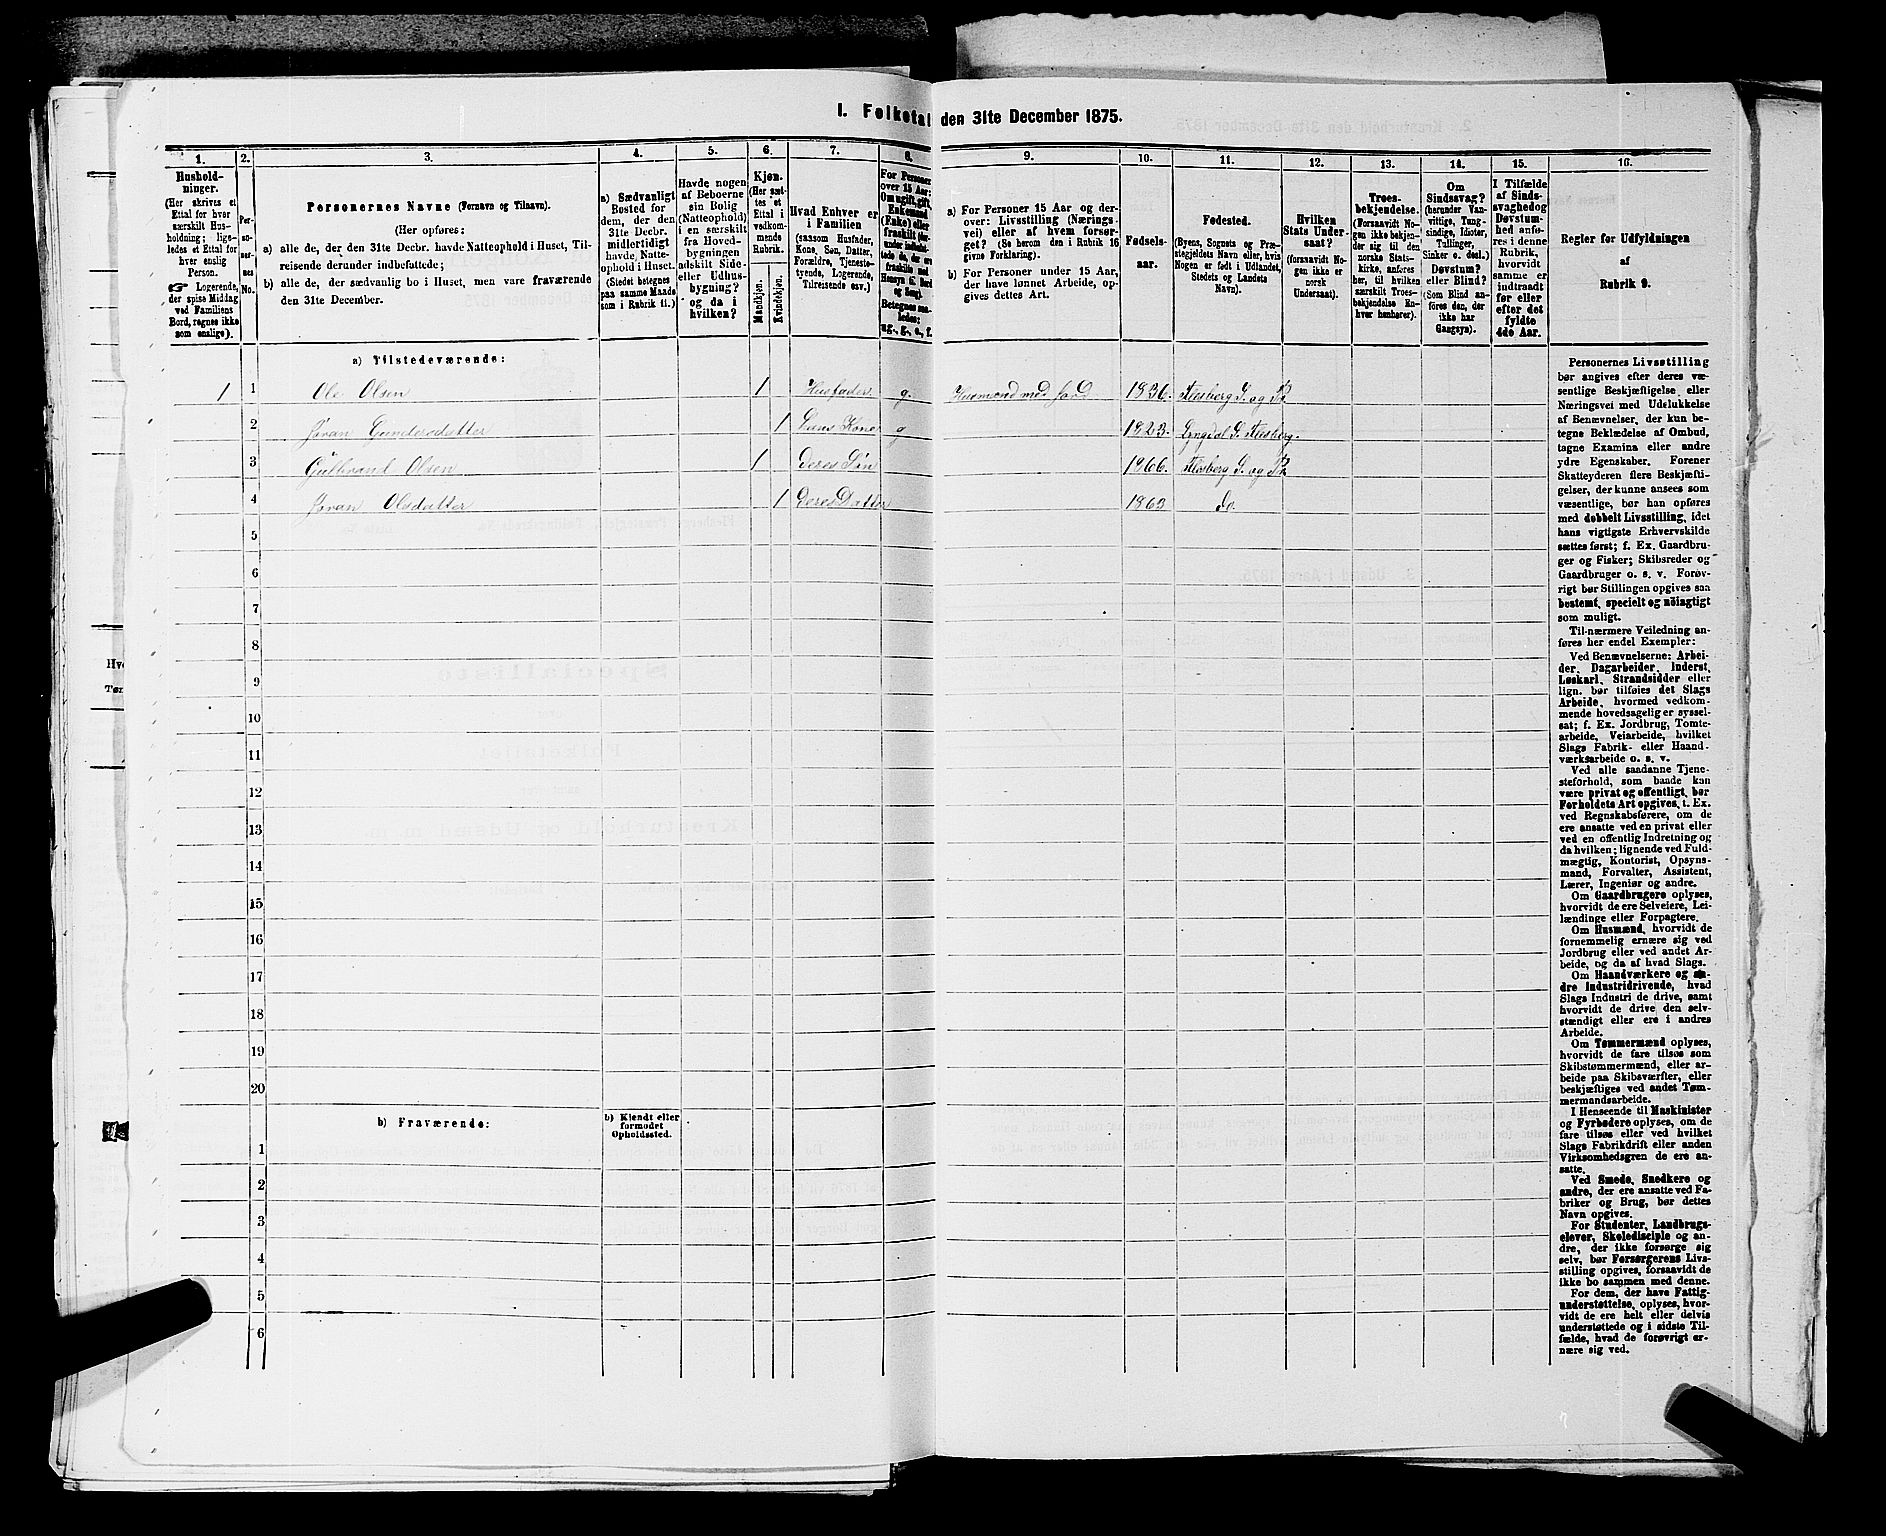 I. Folketal den 31te December 1875.
1. 2. 3. 4. 5. 6. 7. 8. 9. 10. 11. 12. 13. 14. 15. 16.
Hushold-
ninger.
(Her skrives et
Ettal for hver
særskilt Hus-
holdning; lige-
ledes et Ettal for
hver enslig
Person.
☞ Logerende,
der spise Middag
ved Familiens
Bord, regnes ikke
som enslige).
Per-
so-
ner-
nes
No.
Personernes Navne (Fornavn og Tilnavn).
(Her opføres:
a) alle de, der den 31te Decbr. havde Natteophold i Huset, Til-
reisende derunder indbefattede;
b) alle de, der sædvanlig bo i Huset, men vare fraværende
den 31te December.
a) Sædvanligt
Bosted for
dem, der den
31te Decbr.
midlertidigt
havde Natte-
ophold i Huset.
(Stedet betegnes
paa samme Maade
som i Rubrik 11.)
Havde nogen
af Beboerne
sin Bolig
(Natteophold)
i en særskilt
fra Hoved-
bygningen
adskilt Side-
eller Udhus-
bygning?
og da i
hvilken?
Kjøn.
(Her sæt-
tes et
Ettal i
vedkom-
mende
Rubrik.
Mandkjøn.
Kvindekjøn.
Hvad Enhver er
i Familien
(saasom Husfader,
Kone, Søn, Datter,
Forældre, Tjeneste-
tyende, Logerende,
Tilreisende osv.)
For Personer
over 15 Aar:
Om ugift, gift,
Enkemand
(Enke) eller
fraskilt
Betegnes saa-
ledes:
ug., g., e., f.
a) For Personer 15 Aar og der-
over: Livsstilling (Nærings-
vei) eller af hvem forsør-
get? (Se herom den i Rubrik 16
givne Forklaring).
b) For Personer under 15 Aar,
der have lønnet Arbeide, op-
gives dettes Art.
Fødsels-
aar.
Fødested.
(Byens, Sognets og Præ-
stegjeldets Navn eller, hvis
Nogen er født i Udlandet,
Stedets og Landets
Navn).
Hvilken
Stats Under-
saat?
(forsaavidt No-
gen ikke er
norsk
Undersaat).
Troes-
bekjendelse.
(Forsaavidt No-
gen ikke bekjen-
der sig til den
norske Stats-
kirke, anføres
her, til hvilken
særskilt Troes-
bekjendelse En-
hver henhører).
Om
Sindssvag?
(herunder Van-
vittige, Tung-
sindige, Idioter,
Tullinger,
Sinker o. desl.)
Døvstum?
eller Blind?
(Som Blind an-
føres den, der
ikke har
Gangsyn).
I Tilfælde
af Sinds-
svaghed og
Døvstum-
hed anfø-
res i denne
Rubrik,
hvorvidt
samme er
indtraadt
før eller
efter det
fyldte
4de Aar.
Regler for Udfyldningen
af
Rubrik 9.
a) Tilstedeværende:
1 1 Ole Olsen 1 Husfader g. Husmand med Jord 1836. Flesberg S. og Pr.
2 Jøran Gundersdatter 1 Hans Kone g 1823. Lyngdal S. Flesberg.
3 Gulbrand Olsen 1 Deres Søn 1866. Flesberg S. og Pr.
4 Jøran Olsdatter 1 Deres Datter 1863 Do.
5
6
7
8
9
10
11
12
13
14
15
16
17
18
19
20
b) Fraværende:
b) Kjendt eller
formodet
Opholdssted.
1
2
3
4
5
6
Personernes Livsstilling
bør angives efter deres væ-
sentlige Beskjæftigelse eller
Næringsvei med Udelukkelse
af Benævnelser, der kun be-
tegne Beklædelse af Ombud,
tagne Examina eller andre
ydre Egenskaber. Forener
Skatteyderen flere Beskjæfti-
gelser, der kunne ansees som
væsentlige, bør han opføres
med dobbelt Livsstilling, idet
hans vigtigste Erhvervskilde
sættes først; f. Ex. Gaardbru-
ger og Fisker; Skibsreder og
Gaardbruger o. s. v. Forøv-
rigt bør Stillingen opgives saa
bestemt, specielt og nøiagtigt
som muligt.
Til nærmere Veiledning an-
føres her endel Exempler:
Ved Benævnelserne: Arbei-
der, Dagarbeider, Inderst,
Løskarl, Strandsidder eller
lign. bør tilføies det Slags
Arbeide, hvormed vedkom-
mende hovedsagelig er syssel-
sat; f. Ex. Jordbrug, Tomte-
arbeide, Veiarbeide, hvilket
Slags Fabrik- eller Haand-
værksarbeide o. s. v.
Ved alle saadanne Tjene-
steforhold, som baade kan
være privat og offentligt, bør
Forholdets Art opgives, t. Ex.
ved Regnskabsførere, om de
ere ansatte ved en privat eller
ved en offentlig Indretning og
da hvilken; lignende ved Fuld-
mægtig, Kontorist, Opsyns-
mand, Forvalter, Assistent,
Lærer, Ingeniør og andre.
Om Gaardbrugere oplyses,
hvorvidt de ere Selveiere, Lei-
lændinge eller Forpagtere.
Om Husmænd, hvorvidt de
fornemmelig ernære sig ved
Jordbrug eller ved andet Ar-
beide, og da af hvad Slags.
Om Haandværkere og an-
dre Industridrivende, hvad
Slags Industri de drive, samt
hvorvidt de drive den selv-
stændigt eller ere i andres
Arbeide.
Om Tømmermænd oplyses,
hvorvidt de fare tilsøs som
Skibstømmermænd, eller ar-
beide paa Skibsværfter, eller
beskjæftiges ved andet Tøm-
mermandsarbeide.
I Henseende til Maskinister
og Fyrbødere oplyses, om de
fare tilsøs eller ved hvilket
Slags Fabrikdrift eller anden
Virksomhedsgren de ere an-
satte.
Ved Smede, Snedkere og
andre, der ere ansatte ved Fa-
briker og Brug, bør dettes
Navn opgives.
For Studenter, Landbrugs-
elever, Skoledisciple og an-
dre, der ikke forsørge sig
selv, bør Forsørgerens Livs-
stilling opgives, forsaavidt de
ikke bo sammen med denne.
For dem, der have Fattig-
understøttelse, oplyses, hvor-
vidt de ere helt eller delvis
understøttede og i sidste Til-
fælde, hvad de forøvrigt er-
nære sig ved.